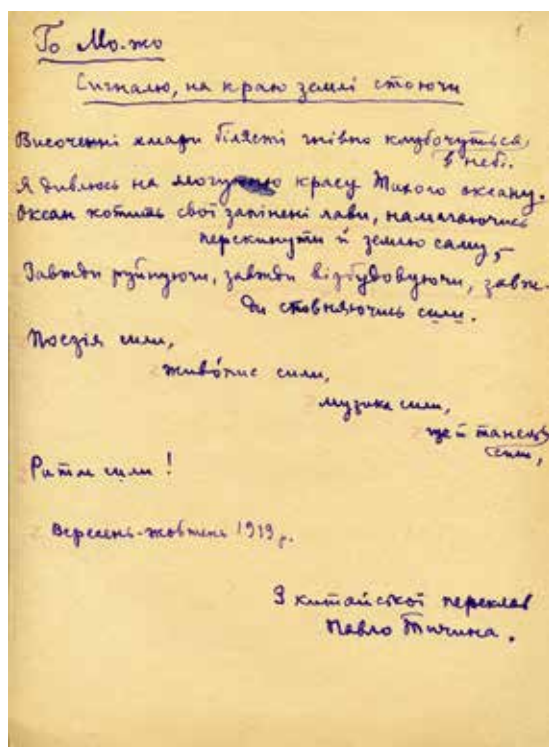 Го Мо-жо
Сигналю, на краю землі стоючи
Височенні хмари білясті гнівно клубочуться
в небі.
Я дивлюсь на могутню красу Тихого океану.
Океан котить свої запінені лави, намагаючись
перекинути й землю саму, –
Завжди руйнуючи, завжди відбудовуючи, завж-
ди сповняючись сили.
Поезія сили,
живопис сили,
музика сили,
ще й танець
сили,
Ритм сили!
Вересень-жовтень 1919 р.
З китайської переклав
Павло Тичина.